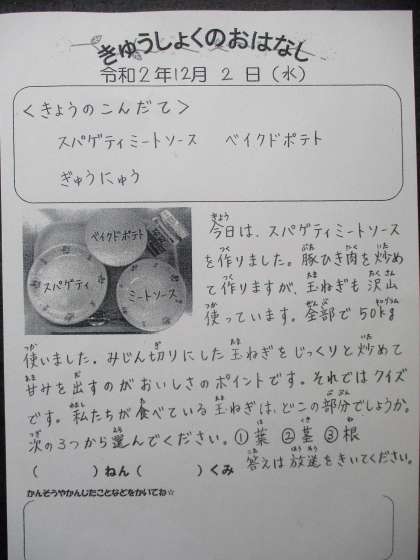 きゅうしょくのおはなし
令和2年12月 2 日（水）
＜きょうのこんだて＞
スパゲティミートソース ベイクドポテト
ぎゅうにゅう
ベイクドポテト
スパゲティ
ミートソース
今日は、スパゲティミートソース
を作りました。豚ひき肉を炒め
て作りますが、玉ねぎも沢山
使っています。全部で50kg
使いました。みじん切りにした玉ねぎをじっくりと炒めて
甘みを出すのがおいしさのポイントです。それではクイズ
です。私たちが食べている玉ねぎは、どこの部分でしょうか。
次の3つから選んでください。①葉 ②茎 ③根
（ ）ねん（ ）くみ 答えは放送をきいてください。
かんそうやかんしたことなどをかいてね☆